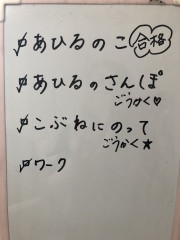 あひるのこ 合格
あひるのさんぽ
ごうかく♡
こぶねにのって
ごうかく★
ワーク